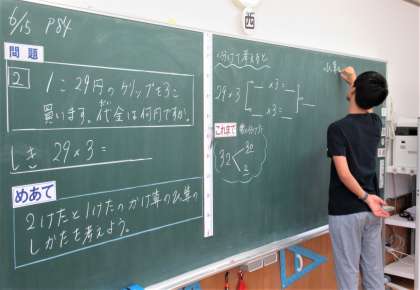 6/15 P84
問題
2
1こ29円のクリップを3こ
買います。代金は何円ですか。
だい
しき 29×3=
めあて
2けたと1けたのかけ算の
しかたを考えよう。
分けて考えると
29×3
×3=
×3=
これまで
32
30
2
西